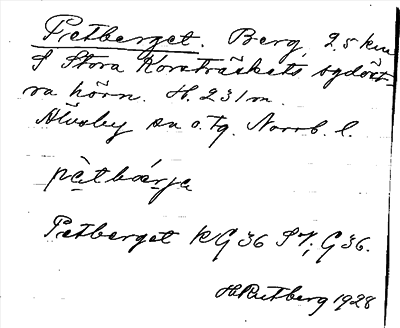 Petberget. Berg, 2.5 km
S Stora Korsträskets sydöst-
ra hörn. H. 231 m.
Älvsby sn o. tg. Norrb. l.
pàtbärja
Petberget KG 36 SV; G 36.
H. Rutberg 1928